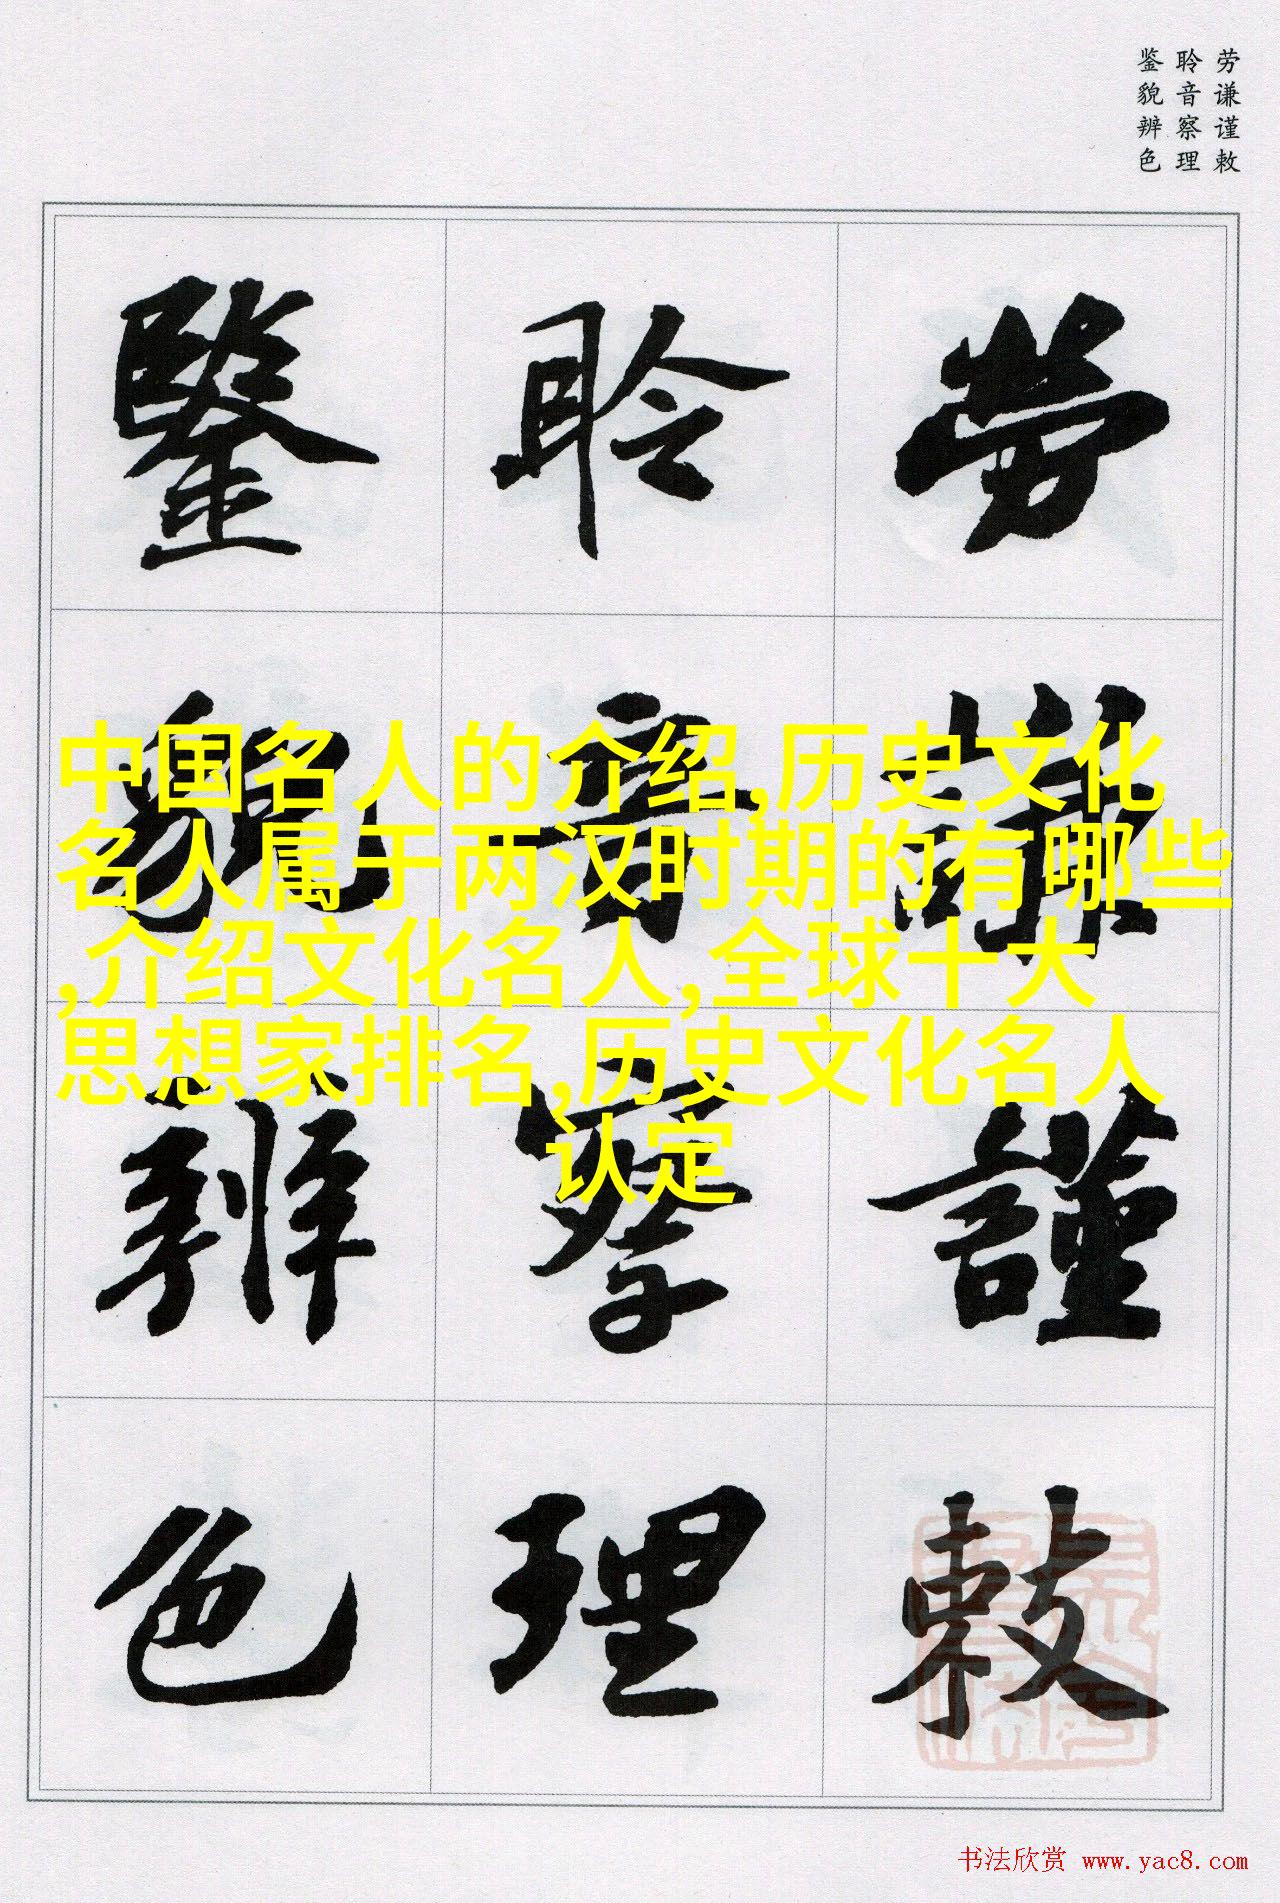 劳谦谨敕
聆音察理
鉴貌辨色
勞謙謹敕
聆音察理
鑒貌辨色
中国名人的介绍,历史文化
名人属于两汉时期的有哪些
,介绍文化名人,全球十大
思想家排名,历史文化名人
认定
书法欣赏 www.yac8.com